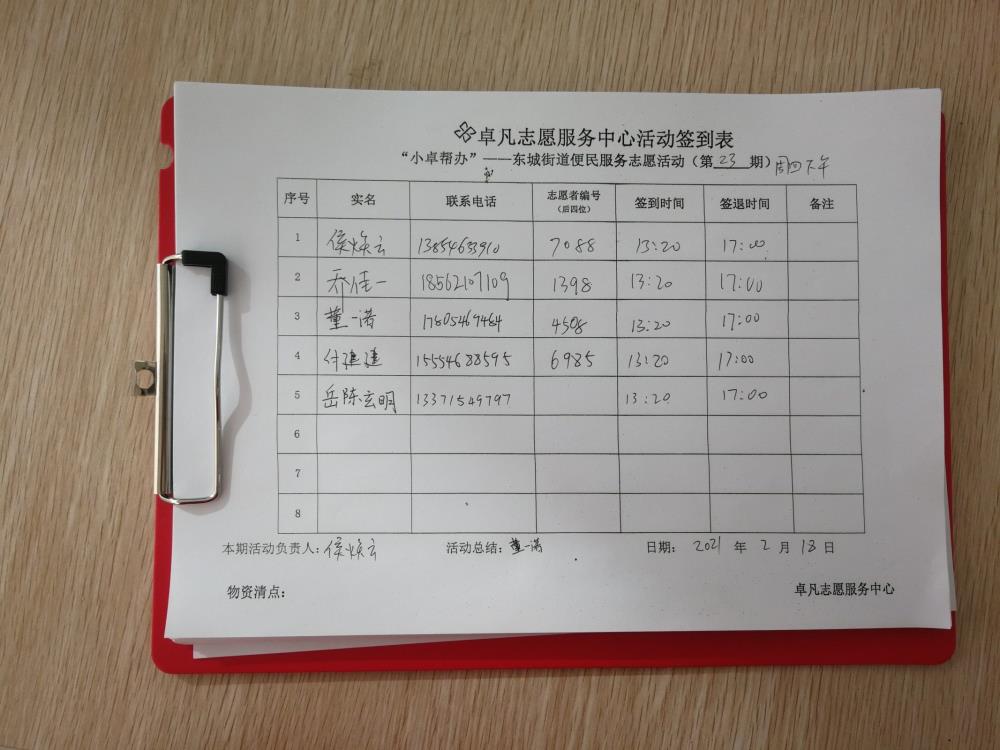 卓凡志愿服务中心活动签到表
“小卓帮办”——东城街道便民服务志愿活动(第23期)周四下午
序号 实名 联系电话 志愿者编号(后四位) 签到时间 签退时间 备注
1 侯焕云 13854633910 7088 13:20 17:00
2 乔佳一 18562107109 1398 13:20 17:00
3 董一诺 17805469484 4508 13:20 17:00
4 付建建 15554688595 6985 13:20 17:00
5 岳陈玄明 13371549797 13:20 17:00
6
7
8
本期活动负责人:侯焕云 活动总结:董一诺 日期: 2021 年 2 月 18 日
物资清点: 卓凡志愿服务中心